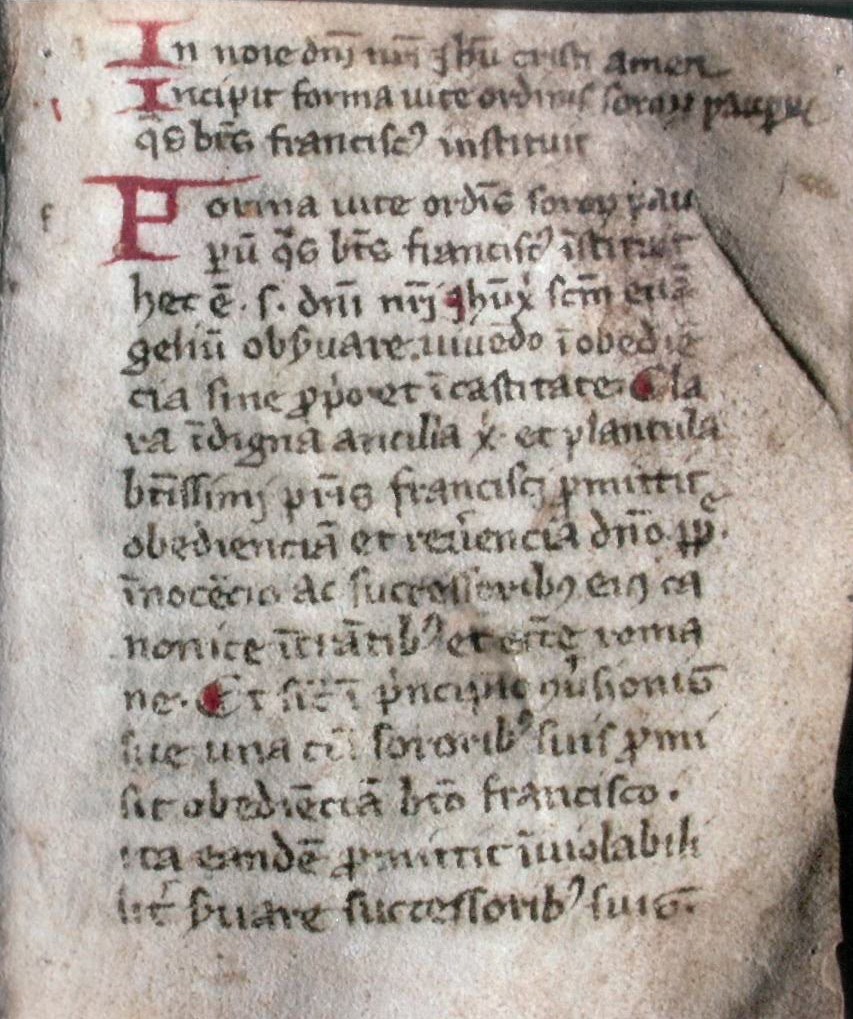 In noīe dn̄j nrī jhū cristi amen
Incipit forma uite ordinis soroꝝ paupeꝝ
q̄ꝫ bt̄s francisc⁹ instituit
Forma uite ordīs soroꝝ pau
ꝑū q̄ꝫ bt̄s francisc⁹ īstituit
hec ē. s. dn̄i nrī̄j jhū x̄ sc̄m euā
geliū obẜuare. uiuēdo ī obediē
cia sine ꝓp̄o et ī castitate. Cla
ra īdigna ancilla x̄. et plantula
bt̄issimj pr̄is francisci ꝓmittit
obedienciā et reu̓enciā dn̄o pp̄.
īnocēcio ac successorib⁹ ei⁹ ca
nonice īt̓ātib⁹ et ecc̄e roma
ne. Et sic̄ ī p̓ncipio ꝯu̓sionis
sue una cū sororib⁹ suis ꝓmi
sit obediēciā bt̄o francisco.
ita eandē ꝓmittit īuiolabili
lit̓ ẜuare successorib⁹ suis.